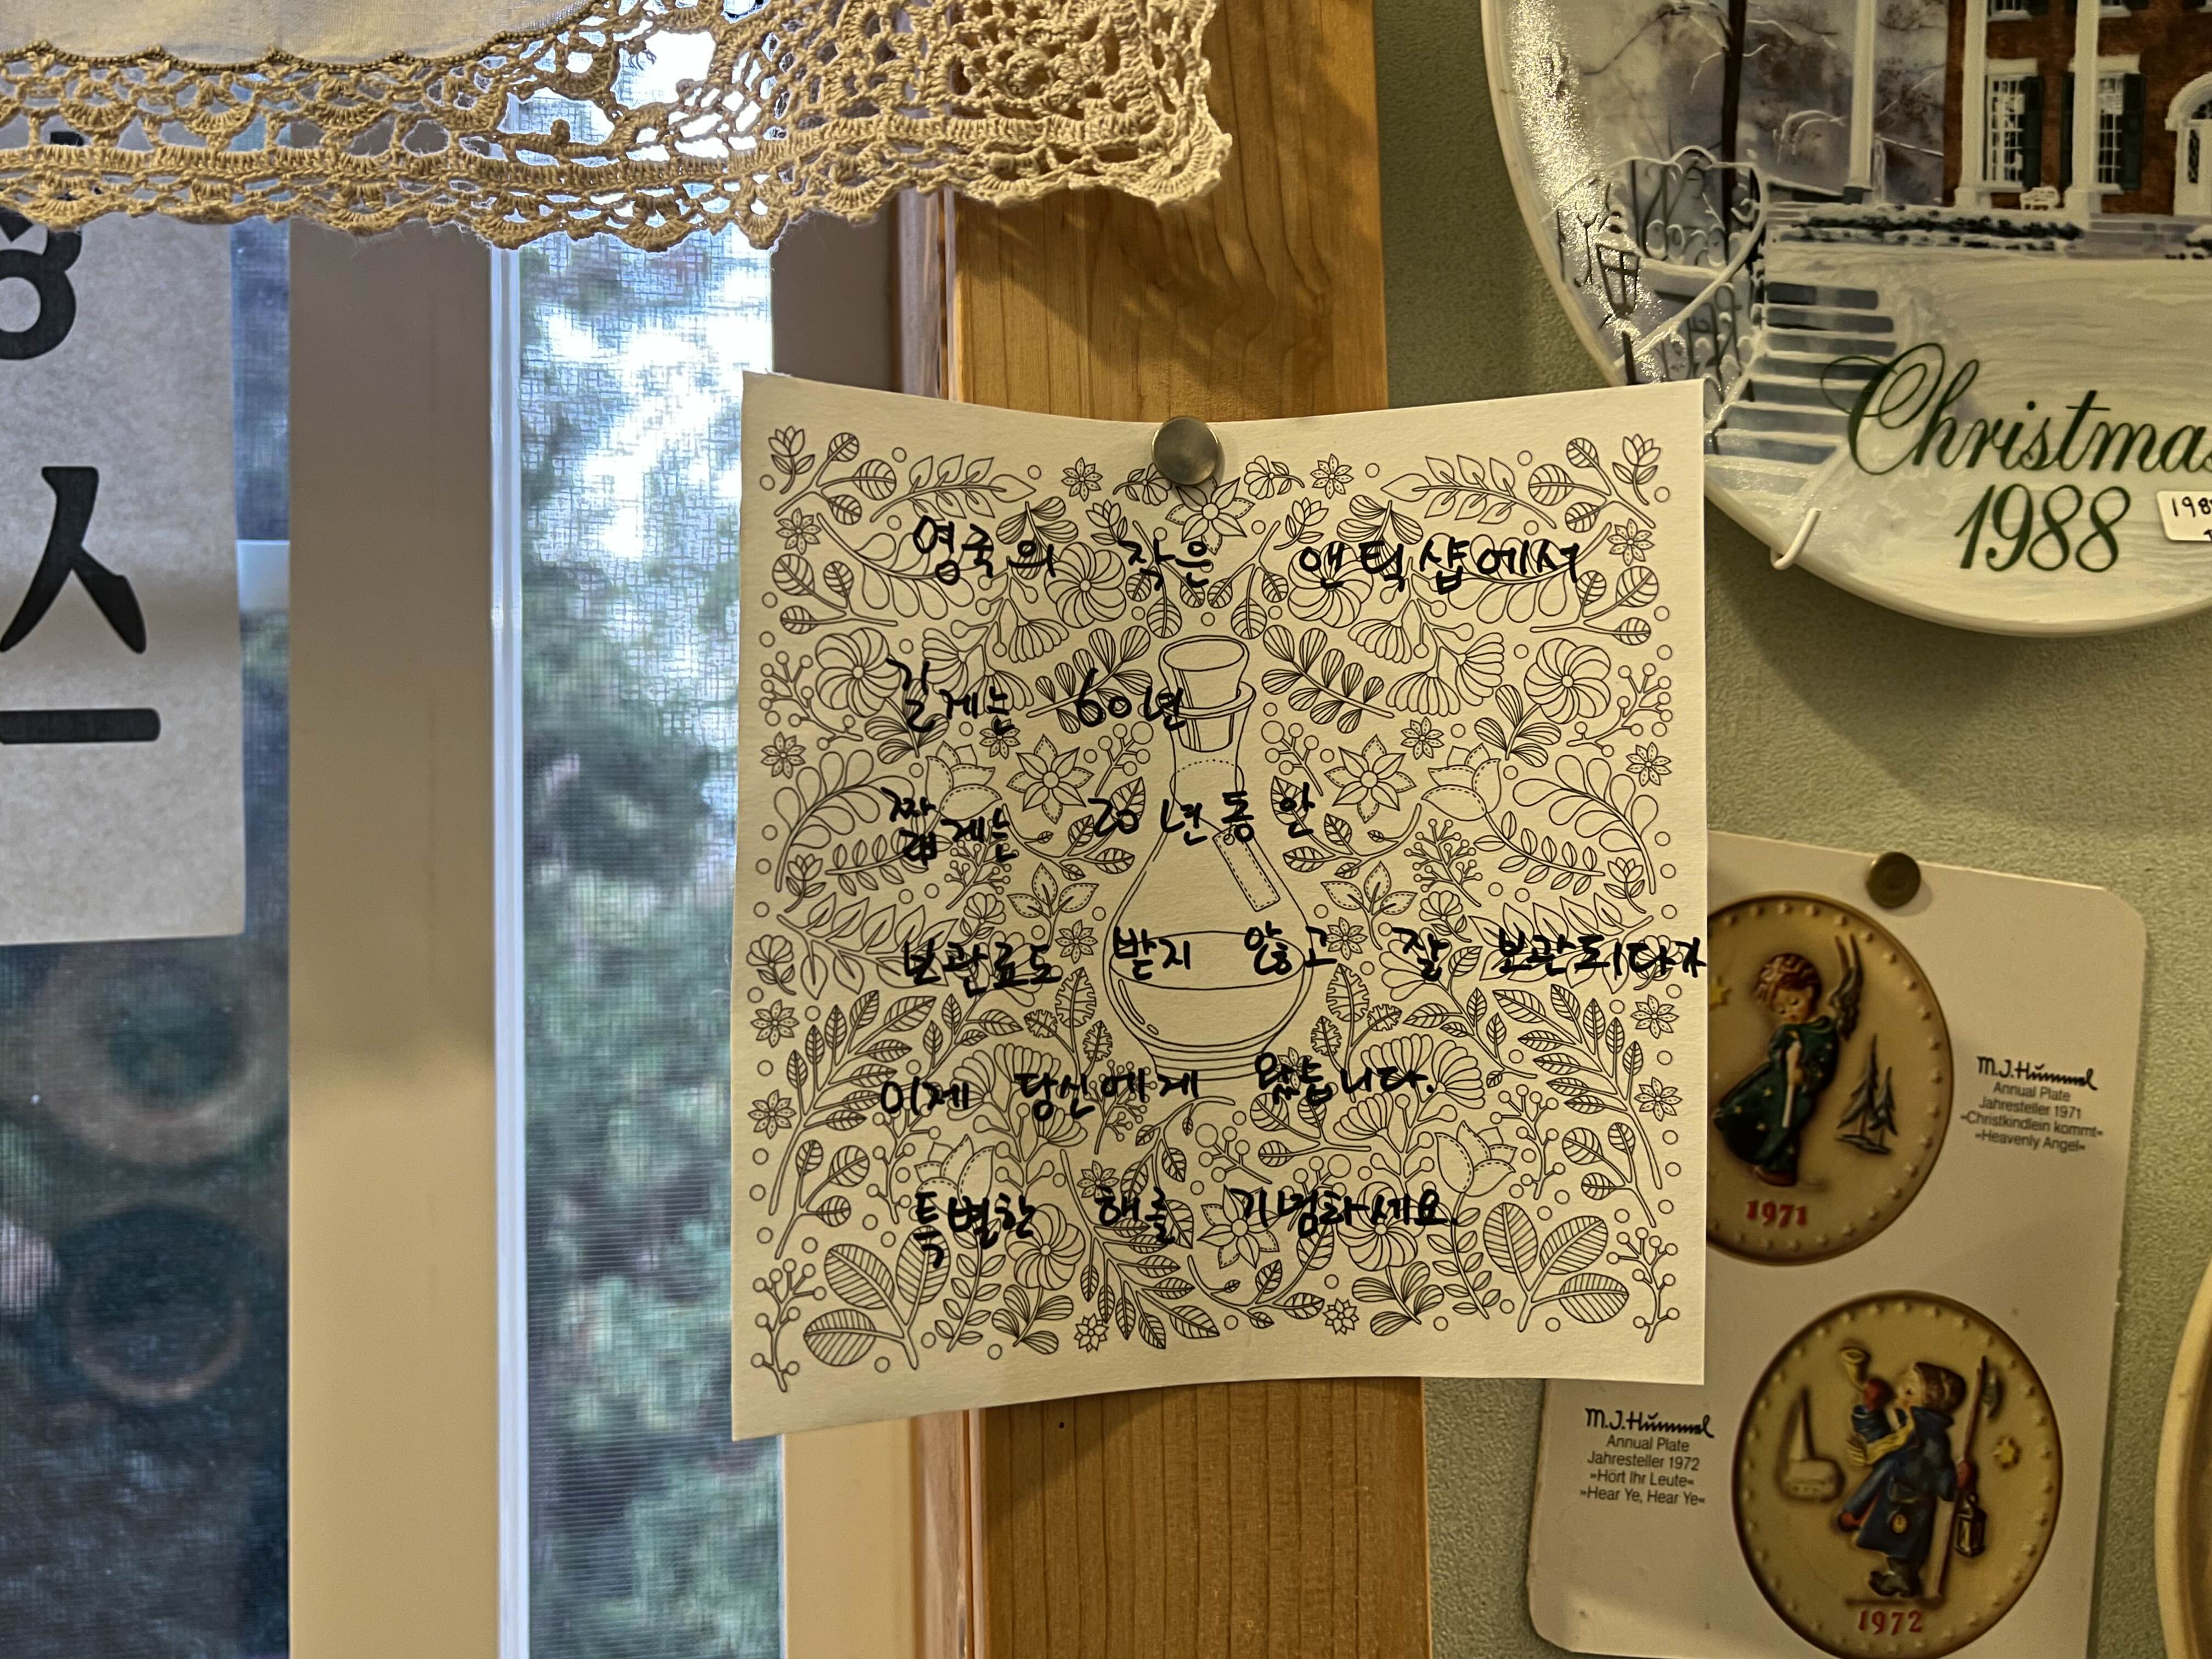 스
영국의 작은 앤틱샵에서
길게는 60년
짧게는 20년동안
보관료도 받지 않고 잘 보관되다가
이제 당신에게 왔습니다.
특별한 해를 기념하세요.
Christmas
1988
M.J.Hümmel
Annual Plate
Jahresteller 1971
»Christkindlein kommt«
»Heavenly Angel«
1971
M.J.Hümmel
Annual Plate
Jahresteller 1972
»Hört Ihr Leute«
»Hear Ye, Hear Ye«
1972